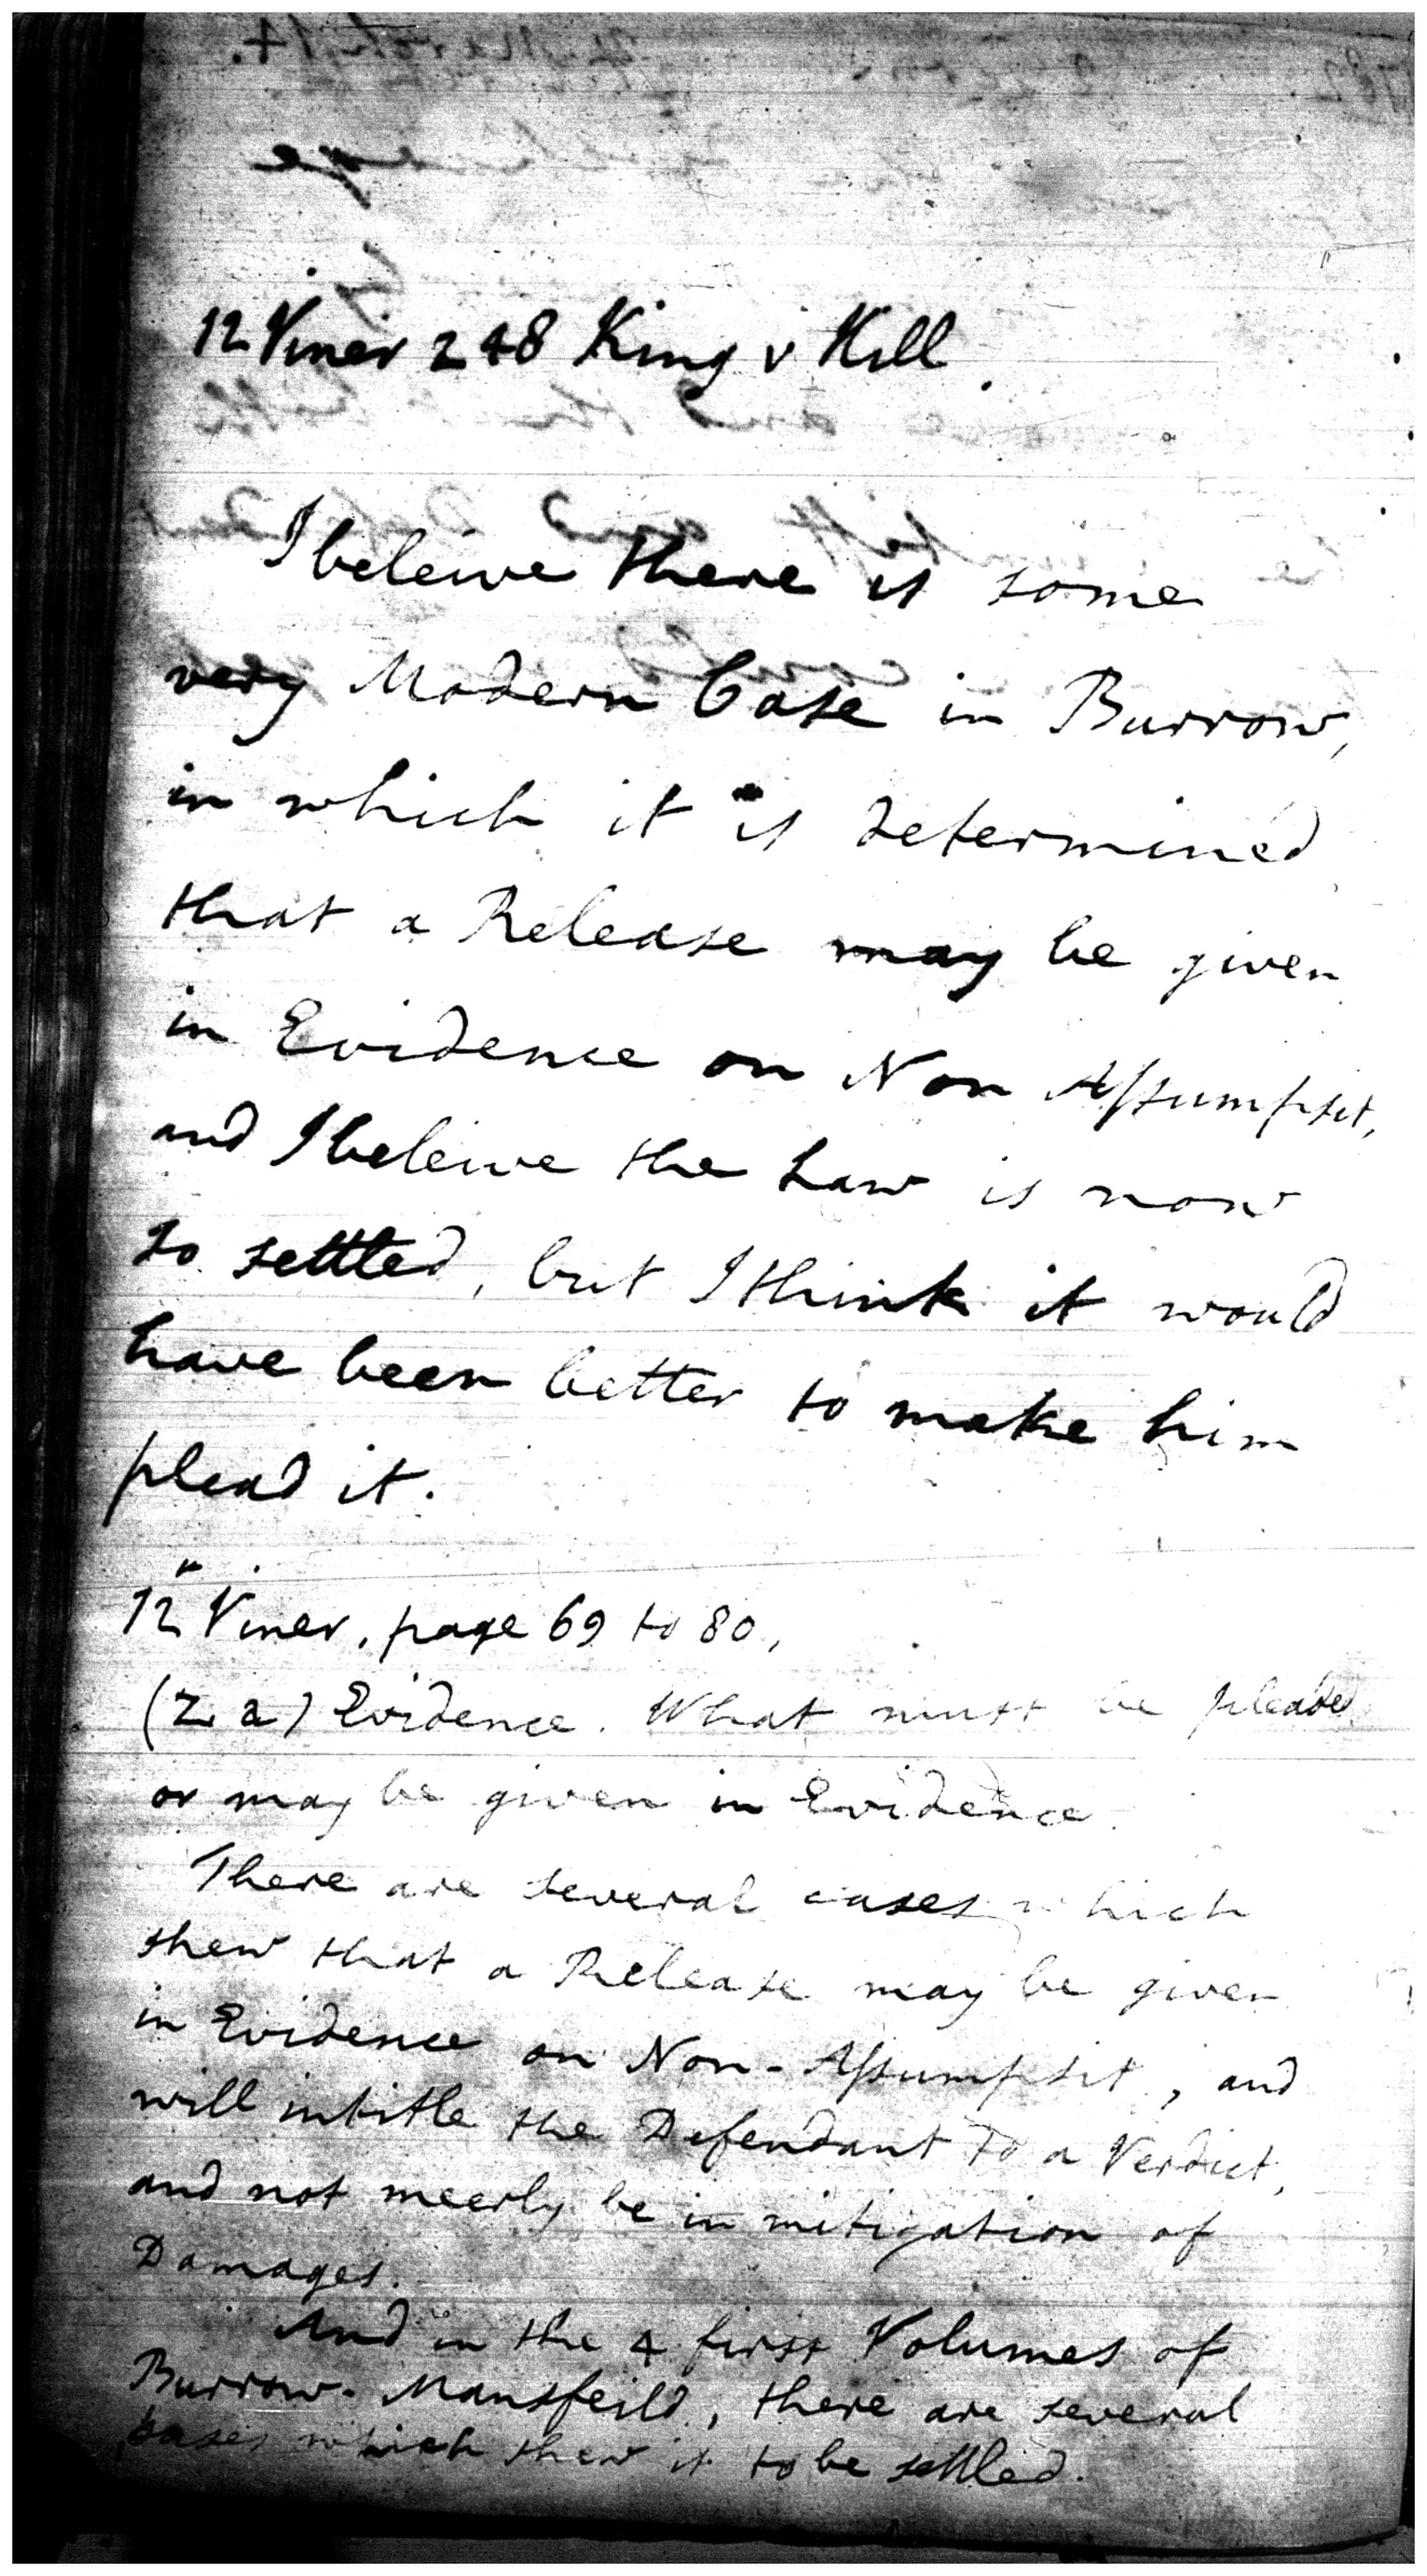 12 Viner 248 King v Hill.
I beleive there is some
very Modern Case in Burrow,
in which it is determined
that a Release may be given
in Evidence on Non Assumpsit,
and I beleive the Law is now
so settled, but I think it would
have been better to make him
plead it.
12 Viner, page 69 to 80,
(Z. a) Evidence. What must be pleaded
or may be given in Evidence.
There are several cases which
shew that a Release may be given
in Evidence on Non-Assumpsit, and
will intitle the Defendant to a Verdict,
and not meerly be in mitigation of
Damages.
And in the 4 first Volumes of
Burrow. Mansfeild, there are several
cases which shew it to be settled.